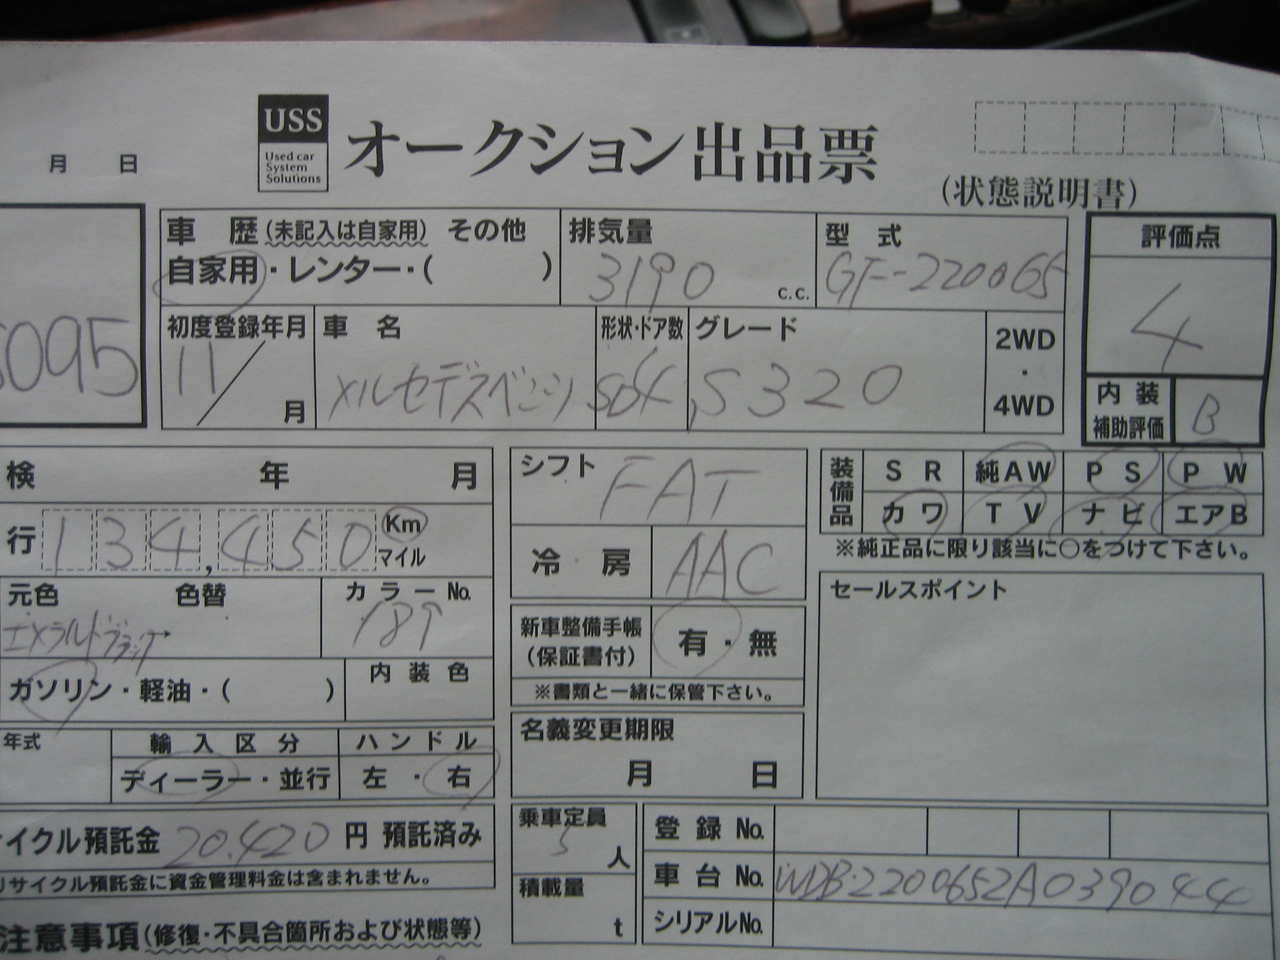 USS
Used car
System
Solutions
オークション出品票
月 日
(状態説明書)
車 歴 (未記入は自家用) その他
自家用・レンター・( )
排気量
3190 c.c.
型 式
GF-220065
評価点
4
5095
初度登録年月
11/ 月
車 名
メルセデスベンツ
形状・ドア数
SD4
グレード
S320
2WD
・
4WD
内 装
補助評価
B
検 年 月
シフト
FAT
装備品
S R 純AW P S P W
カワ T V ナビ エアB
※純正品に限り該当に○をつけて下さい。
行 134,450 Km
マイル
冷 房
AAC
元色 色替
エメラルドブラック
カラーNo.
189
セールスポイント
新車整備手帳
(保証書付)
有・無
※書類と一緒に保管下さい。
ガソリン・軽油・( )
内 装 色
名義変更期限
月 日
年式
輸 入 区 分
ディーラー・並行
ハ ン ド ル
左 ・ 右
イクル預託金 20.420 円 預託済み
リサイクル預託金に資金管理料金は含まれません。
乗車定員
5 人
積載量
t
登 録 No.
車 台 No. WDB-2200652A039044
シリアルNo.
注意事項(修復・不具合箇所および状態等)